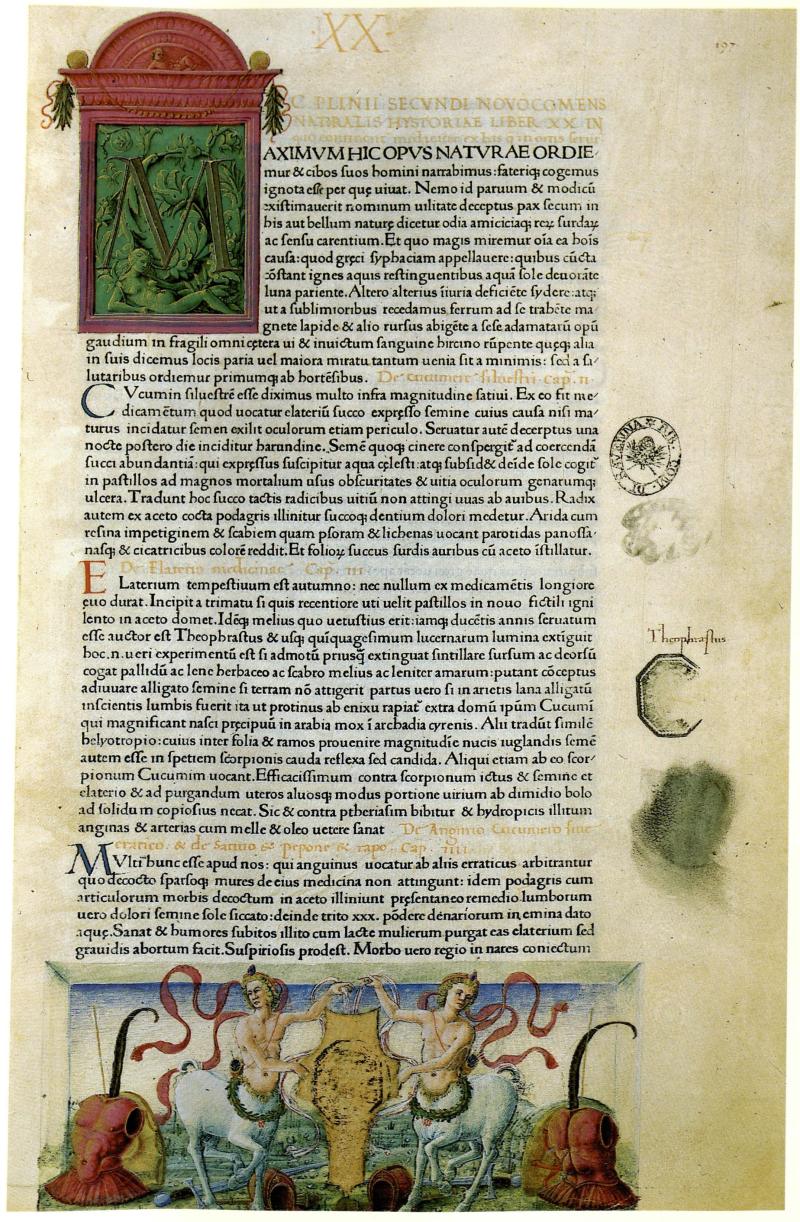 XX
197
C. PLINII SECVNDI NOVOCOMENS
NATVRALIS HYSTORIAE LIBER XX IN
quo continent medicine ex his
M
AXIMVM HIC OPVS NATVRAE ORDIE
mur & cibos suos homini narrabimus: fateriq; cogemus
ignota esse per quę uiuat. Nemo id paruum & modicū
existimauerit nominum uilitate deceptus pax secum in
his aut bellum naturę dicetur odia amiciciaq; reꝝ surdaꝝ
ac sensu carentium. Et quo magis miremur oīa ea hoīs
causa: quod gręci syphaciam appellauere: quibus cūcta
cōstant ignes aquis restinguentibus aquā sole deuorāte
luna pariente. Altero alterius īiuria deficiēte sydere: atq;
ut a sublimioribus recedamus ferrum ad se trahēte ma
gnete lapide & alio rursus abigēte a sese adamatarū opū
gaudium in fragili omni cętera ui & inuictum sanguine hircino rūpente quęq; alia
in suis dicemus locis paria uel maiora miratu tantum uenia sit a minimis: sed a sa
lutaribus ordiemur primumq; ab hortēsibus. De cucumere siluestri cap. ii
CVcumin siluestrē esse diximus multo infra magnitudine satiui. Ex eo fit me
dicamētum quod uocatur elateriū succo expresso semine cuius causa nisi ma
turus incidatur semen exilit oculorum etiam periculo. Seruatur autē decerptus una
nocte postero die inciditur harundine. Semē quoq; cinere conspergit̃ ad coercendā
succi abundantiā: qui expressus suscipitur aqua cęlesti: atq; subsid& deīde sole cogit̃
in pastillos ad magnos mortalium usus obscuritates & uitia oculorum genarumq;
ulcera. Tradunt hoc succo tactis radicibus uitiū non attingi uuas ab auibus. Radix
autem ex aceto cocta podagris illinitur succoq; dentium dolori medetur. Arida cum
resina impetiginem & scabiem quam psoram & lichenas uocant parotidas panossa
nasq; & cicatricibus colorē reddit. Et folioꝝ succus surdis auribus cū aceto īstillatur.
De Elaterio medicinae Cap. III
ELaterium tempestiuum est autumno: nec nullum ex medicamētis longiore
ęuo durat. Incipit a trimatu si quis recentiore uti uelit pastillos in nouo fictili igni
lento in aceto domet. Idēq; melius quo uetustius erit: iamq; ducētis annis seruatum
esse auctor est Theophrastus & usq; quīquagesimum lucernarum lumina extīguit
hoc.n. ueri experimentū est si admotū priusq̃ extinguat sintillare sursum ac deorsū
cogat pallidū ac lene herbaceo ac scabro melius ac leniter amarum: putant cōceptus
adiuuare alligato semine si terram nō attigerit partus uero si in arietis lana alligatū
inscientis lumbis fuerit ita ut protinus ab enixu rapiat̃ extra domū ipūm Cucumī
qui magnificant nasci pręcipuū in arabia mox ī archadia cyrenis. Alii tradūt similē
helyotropio: cuius inter folia & ramos prouenire magnitudīe nucis iuglandis semē
autem esse in spetiem scorpionis cauda reflexa sed candida. Aliqui etiam ab eo scor
pionum Cucumim uocant. Efficacissimum contra scorpionum ictus & semine et
elaterio & ad purgandum uteros aluosq; modus portione uirium ab dimidio bolo
ad solidum copiosius necat. Sic & contra ptheriasim bibitur & hydropicis illitum
anginas & arterias cum melle & oleo uetere sanat De Anginio Cucumero siue
erratico. & de Satiuo & pepone & rapo. Cap. IIII.
MVlti hunc esse apud nos: qui anguinus uocatur ab aliis erraticus arbitrantur
quo decocto sparsoq; mures de eius medicina non attingunt: idem podagris cum
articulorum morbis decoctum in aceto illiniunt pręsentaneo remedio lumborum
uero dolori semine sole siccato: deinde trito xxx. pōdere denariorum in emina dato
aquę. Sanat & humores subitos illito cum lacte mulierum purgat eas elaterium sed
grauidis abortum facit. Suspiriosis prodest. Morbo uero regio in nares coniectum
BIB. COM. DI RAVENNA
Theophrastus